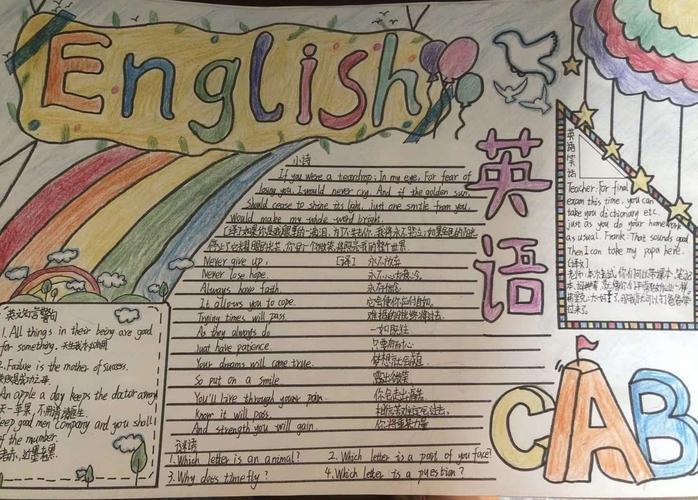 English
英语
小诗
If you were a teardrop; In my eye, For fear of
losing you, I would never cry. And if the golden sun,
should cease to shine its light, just one smile from you,
Would make my whole world bright.
Never give up, [译] 永不放弃
Never lose hope. 永不心灰意冷
Always have faith, 永存信念
It allows you to cope.
Trying times will pass
As they always do 一如既往
Just have patience. 只要有耐心
Your dreams will come true.
So put on a smile 露出微笑
You'll live through your pain.
Know it will pass
And strength you will gain.
谜语
1.Which letter is an animal? 2. Which letter is a part of you face?
3. Why does time fly? 4. Which letter is a question?
英文知言警句
1. All things in their being are good
for something. 天生我才必有用
2. Failure is the mother of success.
失败是成功之母
An apple a day keeps the doctor away
天一苹果,不用请医生
keep good men company and you shall
of the number.
近墨者黑
英语笑话
Teacher: For final
exam this time, you can
take you dictionary etc.
just as you do your homework
as usual. Frank: That sounds good
Then I can take my papa here.
[译文]
CAB